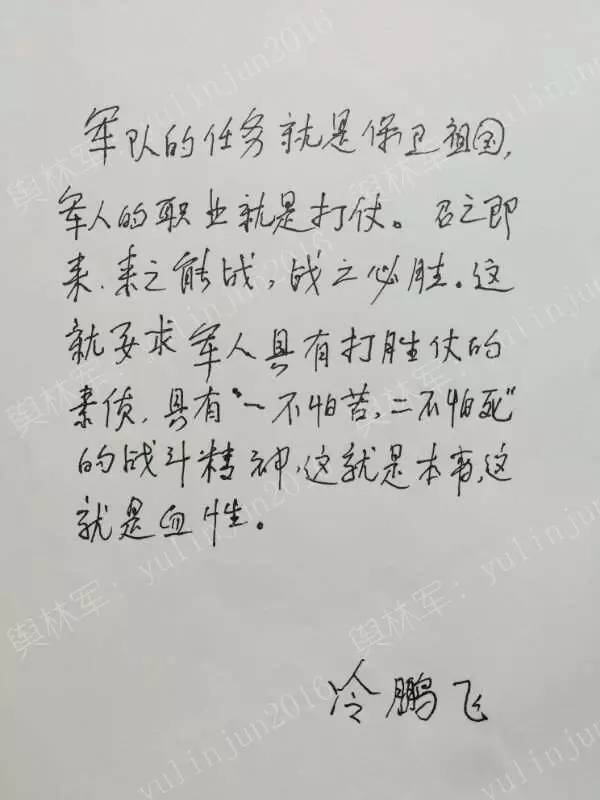 军队的任务就是保卫祖国，
军人的职业就是打仗。召之即
来、来之能战，战之必胜。这
就要求军人具有打胜仗的
素质，具有“一不怕苦，二不怕死”
的战斗精神，这就是本事，这
就是血性。
冷鹏飞
舆林军：yulinjun2016